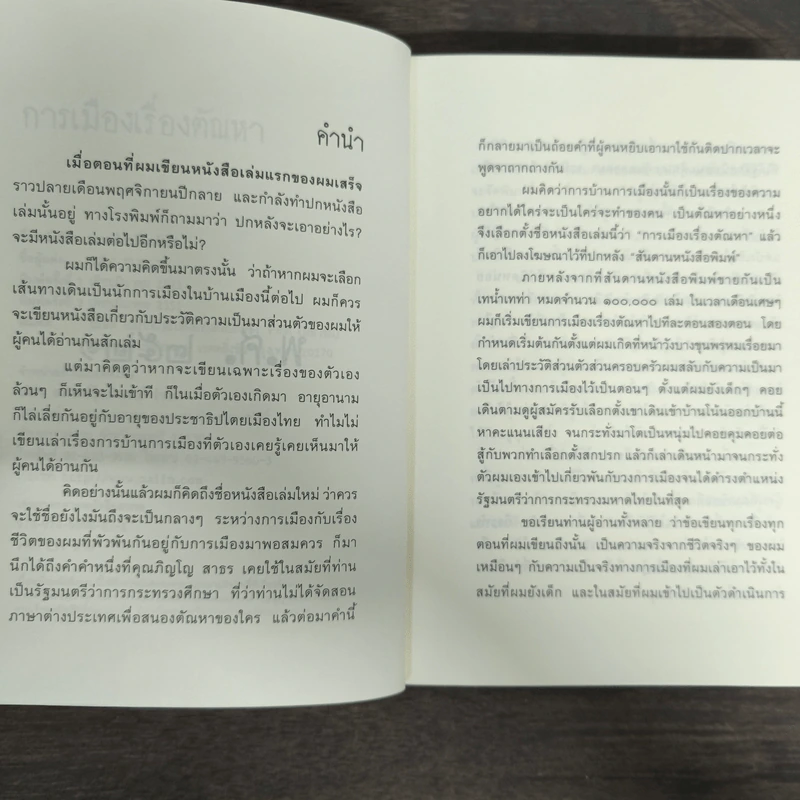 การเมืองเรื่องตัณหา
คำนำ
เมื่อตอนที่ผมเขียนหนังสือเล่มแรกของผมเสร็จ
ราวปลายเดือนพฤศจิกายนปีกลาย และกำลังทำปกหนังสือ
เล่มนั้นอยู่ ทางโรงพิมพ์ก็ถามมาว่า ปกหลังจะเอาอย่างไร?
จะมีหนังสือเล่มต่อไปอีกหรือไม่?
ผมก็ได้ความคิดขึ้นมาตรงนั้น ว่าถ้าหากผมจะเลือก
เส้นทางเดินเป็นนักการเมืองในบ้านเมืองนี้ต่อไป ผมก็ควร
จะเขียนหนังสือเกี่ยวกับประวัติความเป็นมาส่วนตัวของผมให้
ผู้คนได้อ่านกันสักเล่ม
แต่มาคิดดูว่าหากจะเขียนเฉพาะเรื่องของตัวเอง
ล้วนๆ ก็เห็นจะไม่เข้าที ก็ในเมื่อตัวเองเกิดมา อายุอานาม
ก็ไล่เลี่ยกันอยู่กับอายุของประชาธิปไตยเมืองไทย ทำไมไม่
เขียนเล่าเรื่องการบ้านการเมืองที่ตัวเองเคยรู้เคยเห็นมาให้
ผู้คนได้อ่านกัน
คิดอย่างนั้นแล้วผมก็คิดถึงชื่อหนังสือเล่มใหม่ ว่าควร
จะใช้ชื่อยังไงมันถึงจะเป็นกลางๆ ระหว่างการเมืองกับเรื่อง
ชีวิตของผมที่พัวพันกันอยู่กับการเมืองมาพอสมควร ก็มา
นึกได้ถึงคำคำหนึ่งที่คุณภิญโญ สาธร เคยใช้ในสมัยที่ท่าน
เป็นรัฐมนตรีว่าการกระทรวงศึกษา ที่ว่าท่านไม่ได้จัดสอน
ภาษาต่างประเทศเพื่อสนองตัณหาของใคร แล้วต่อมาคำนี้
ก็กลายมาเป็นถ้อยคำที่ผู้คนหยิบเอามาใช้กันติดปากเวลาจะ
พูดจาถากถางกัน
ผมคิดว่าการบ้านการเมืองนั้นก็เป็นเรื่องของความ
อยากได้ใคร่จะเป็นใคร่จะทำของคน เป็นตัณหาอย่างหนึ่ง
จึงเลือกตั้งชื่อหนังสือเล่มนี้ว่า "การเมืองเรื่องตัณหา" แล้ว
ก็เอาไปลงโฆษณาไว้ที่ปกหลัง "สันดานหนังสือพิมพ์"
ภายหลังจากที่สันดานหนังสือพิมพ์ขายกันเป็น
เทน้ำเทท่า หมดจำนวน ๑๐๐,๐๐๐ เล่ม ในเวลาเดือนเศษๆ
ผมก็เริ่มเขียนการเมืองเรื่องตัณหาไปทีละตอนสองตอน โดย
กำหนดเริ่มต้นกันตั้งแต่ผมเกิดที่หน้าวังบางขุนพรหมเรื่อยมา
โดยเล่าประวัติส่วนตัวส่วนครอบครัวผมสลับกับความเป็นมา
เป็นไปทางการเมืองไว้เป็นตอนๆ ตั้งแต่ผมยังเด็กๆ คอย
เดินตามดูผู้สมัครรับเลือกตั้งเขาเดินเข้าบ้านโน้นออกบ้านนี้
หาคะแนนเสียง จนกระทั่งมาโตเป็นหนุ่มไปคอยคุมคอยต่อ
สู้กับพวกทำเลือกตั้งสกปรก แล้วก็เล่าเดินหน้ามาจนกระทั่ง
ตัวผมเองเข้าไปเกี่ยวพันกับวงการเมืองจนได้ดำรงตำแหน่ง
รัฐมนตรีว่าการกระทรวงมหาดไทยในที่สุด
ขอเรียนท่านผู้อ่านทั้งหลาย ว่าข้อเขียนทุกเรื่องทุก
ตอนที่ผมเขียนถึงนั้น เป็นความจริงจากชีวิตจริงๆ ของผม
เหมือนๆ กับความเป็นจริงทางการเมืองที่ผมเล่าเอาไว้ทั้งใน
สมัยที่ผมยังเด็ก และในสมัยที่ผมเข้าไปเป็นตัวดำเนินการ